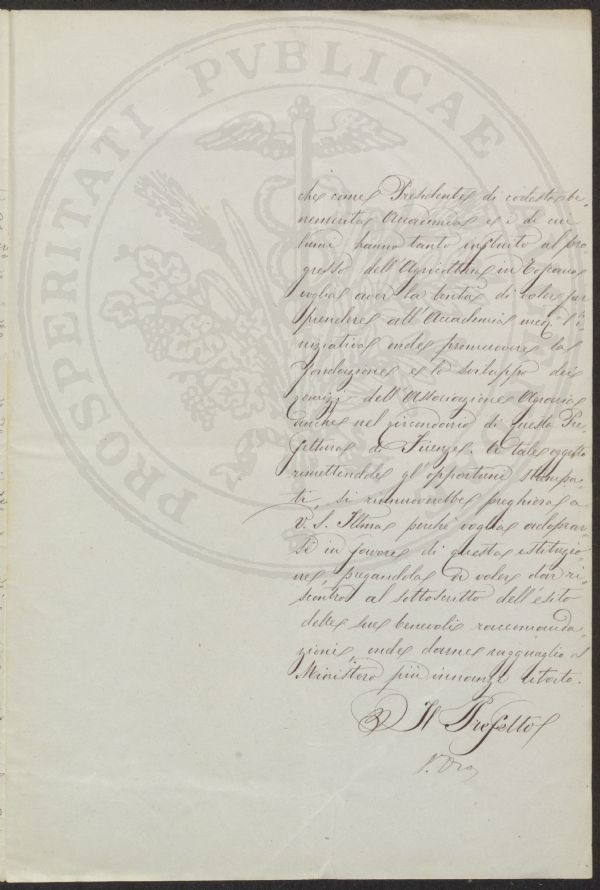 PROSPERITATI PVBLICAE
che come Presidente di codesta be-
nemerita Accademia e di cui
hanno tanto influito al pro
gresso dell'Agricoltura in Toscana
voglia aver la bontà di voler far
prendere all'Accademia med.ª l'i
niziativa onde promuovere la
fondazione e lo sviluppo dei
Comizj dell'Associazione Agraria
anche nel circondario di questa Pre-
fettura di Firenze. A tale oggetto
remettendole gl'opportuni stampa-
ti, si rinnuoverebbe preghiera a
V. S. Illma perché voglia adoprar-
si in favore di questa istituzio-
ne, pregandola di voler dar ri-
scontro al sottoscritto dell'esito
delle sue benevoli raccomanda
zioni, onde darne ragguaglio al
Ministero più innanzi citato.
Il Prefetto